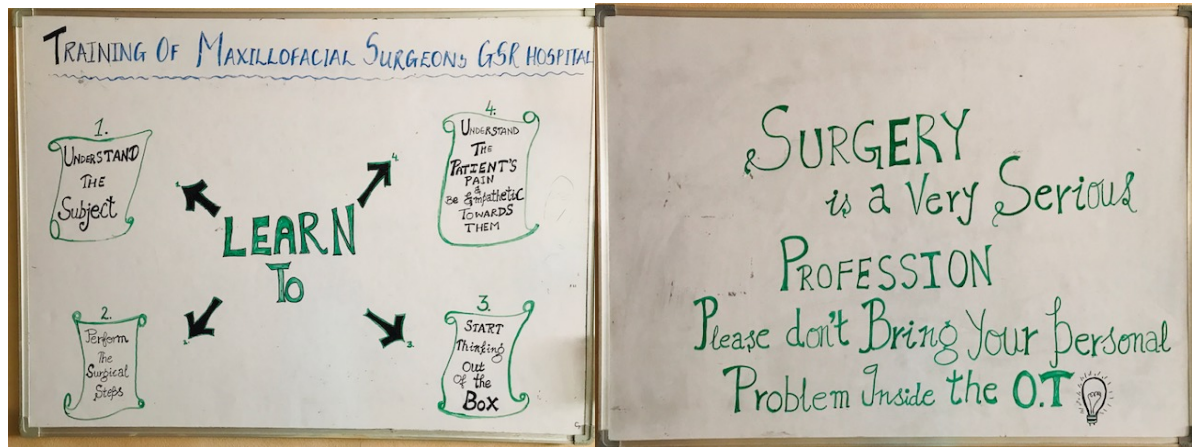 TRAINING OF MAXILLOFACIAL SURGEONS GSR HOSPITAL
1.
UNDERSTAND
THE
Subject
4.
UNDERSTAND
THE
PATIENT'S
PAIN
&
Be Empathetic
TOWARDS
THEM
1.
4.
LEARN
To
2.
Perform
The
Surgical
Steps
2.
3.
3.
START
Thinking
Out
Of the
Box
SURGERY
is a Very Serious
PROFESSION
Please don't Bring Your Personal
Problem Inside the O.T